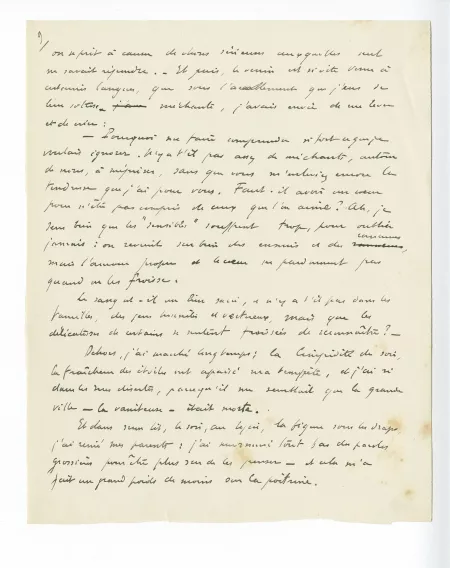 9/
on se prit à cause de choses sérieuses auxquelles seul
ne savait répondre. - Et puis, le venin est si vite venu à
certaines langues, que sous l'accablement que j'eus de
leur sottise méchante, j'avais envie de me lever
et de crier :
— Pourquoi me faire comprendre si fort ce que je
voulais ignorer. N'y a t'il pas assez de méchants, autour
de nous, à mépriser, sans que vous m'enleviez encore la
tendresse que j'ai pour vous. Faut-il avoir un cœur
pour n'être pas compris de ceux que l'on aime ? Ah, je
sens bien que les "sensibles" souffrent trop, pour oublier
jamais : on revient sur bien des ennuis et des rancunes,
mais l'amour propre et le cœur ne pardonnent pas
quand on les froisse.
Le sang est-il un lien sacré, et n'y a t'il pas dans les
familles, des gens et vertueux, mais que les
délicatesses de certains se sentent froissées de reconnaître ? —
Dehors, j'ai marché longtemps ; la limpidité du soir,
la fraîcheur des étoiles ont apaisé ma tempête, et j'ai ri
dans les rues désertes, parce qu'il me semblait que la grande
ville — la vaniteuse — était morte.
Et dans mon lit, le soir, au lycée, la figure sous les draps
j'ai renié mes parents ; j'ai murmuré tout bas des paroles
grossières pour être plus seul de les penser — et cela m'a
fait un grand poids de moins sur la poitrine.